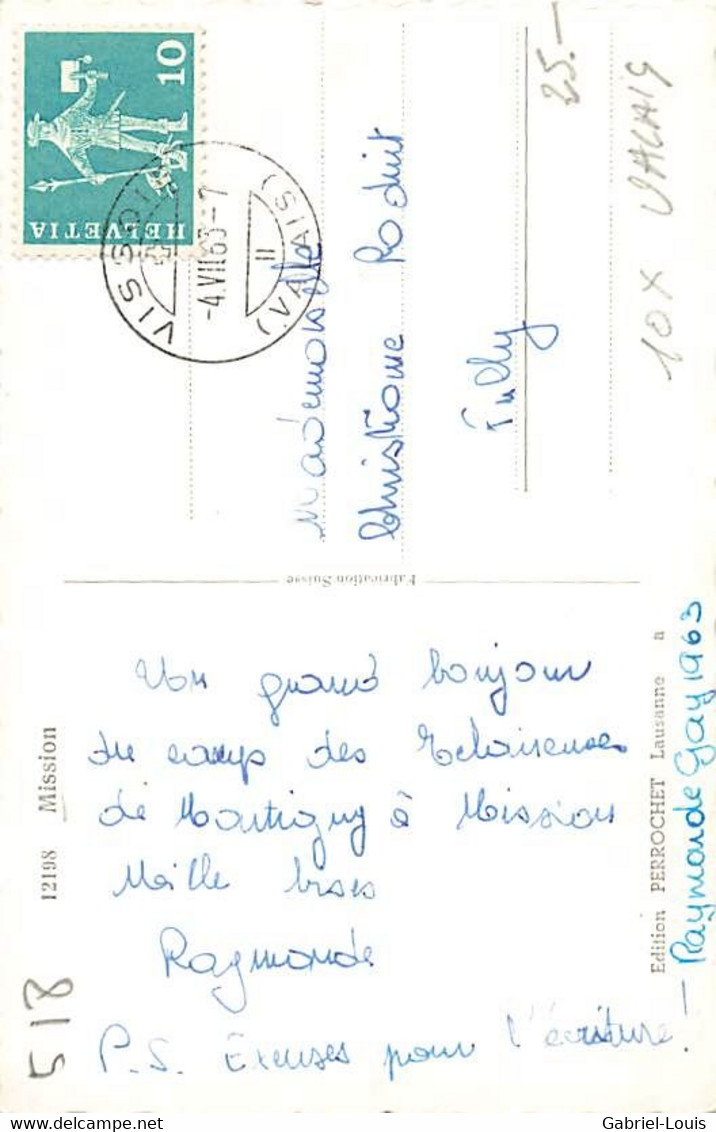 10
HELVETIA
VISSOIE
-4.VII.63-7
II
(VALAIS)
Mademoiselle
Christiane Roduit
Fully
25.-
10X VALAIS
Fabrication Suisse
12198 Mission
Un grand bonjour
du camp des Eclaireuses
de Martigny à Mission
Mille bises
Raymonde
P.S. Excuses pour l'écriture!
Edition PERROCHET Lausanne a
Raymonde Gay 1963
518
Gabriel-Louis